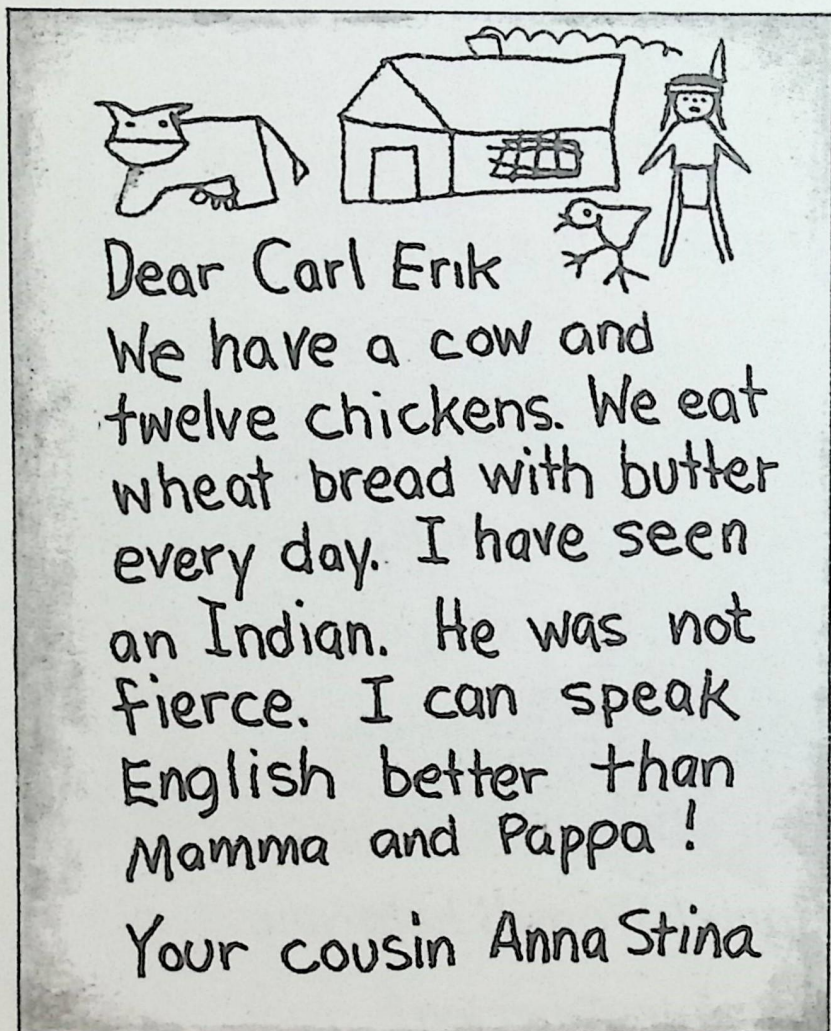 Dear Carl Erik
We have a cow and
twelve chickens. We eat
wheat bread with butter
every day. I have seen
an Indian. He was not
fierce. I can speak
English better than
Mamma and Pappa!
Your cousin Anna Stina